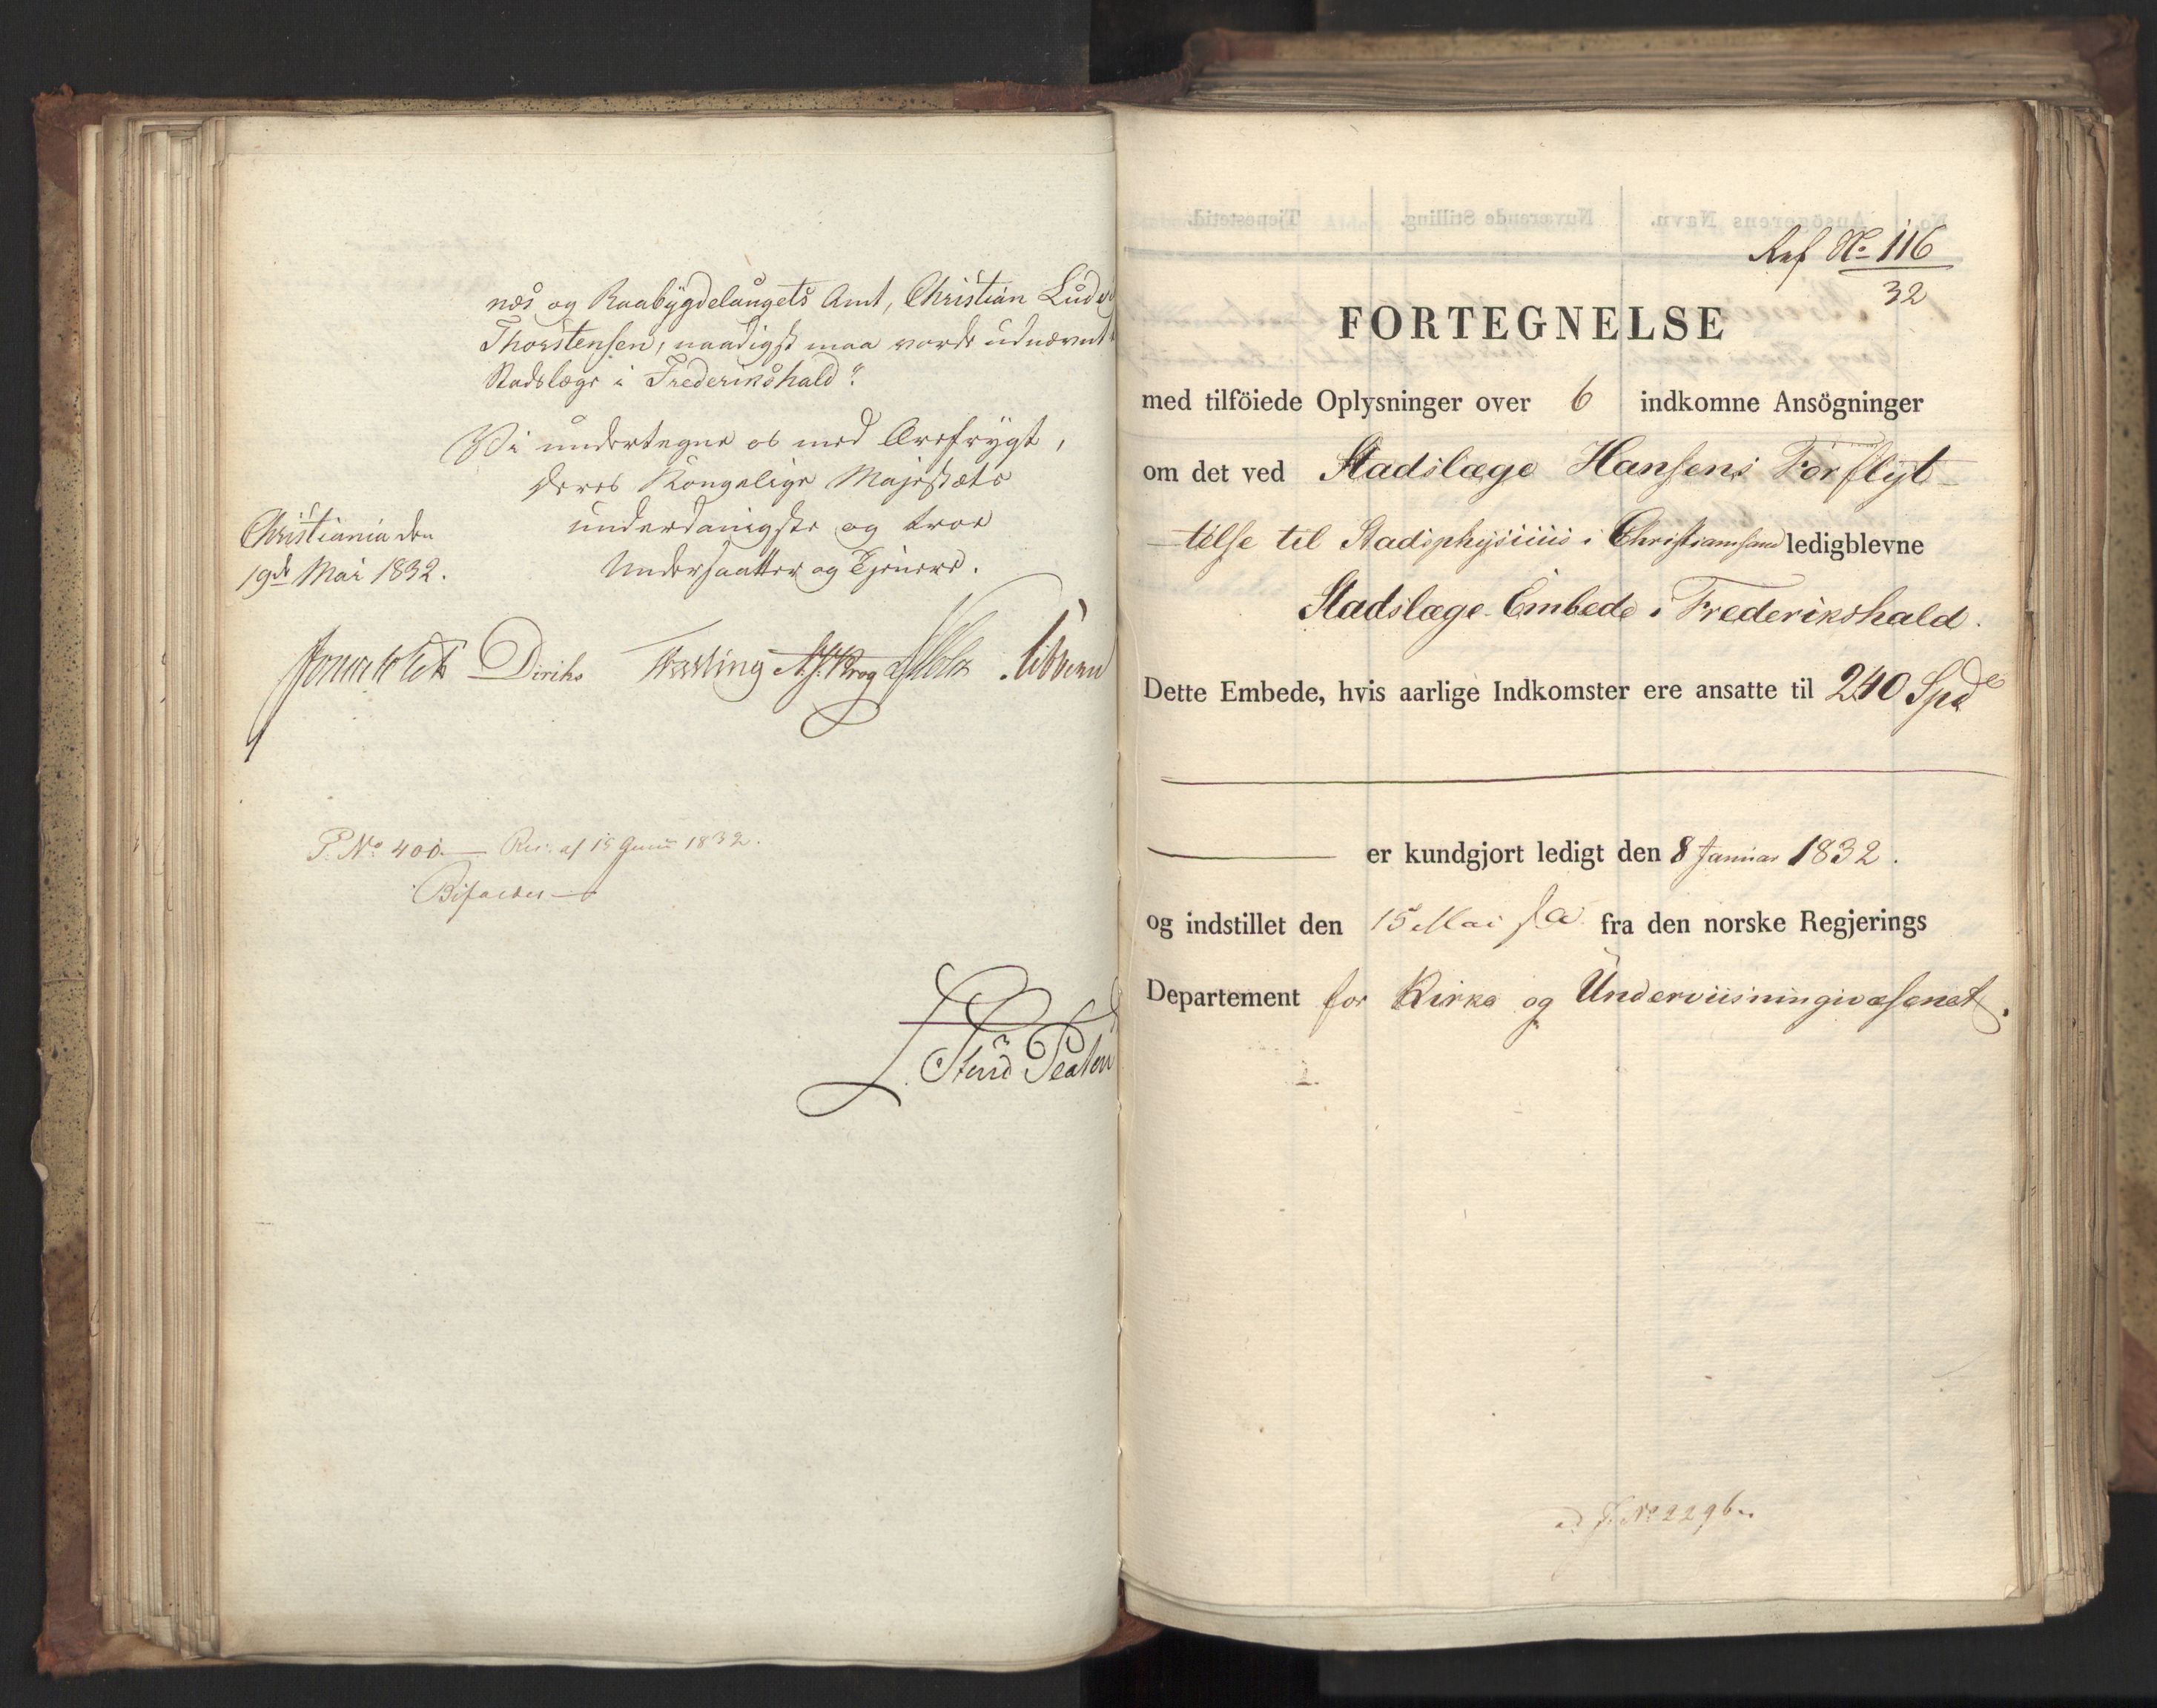 næs og Raabÿgdelaugets Amt, Christian Ludv
Thorstensen, naadigst maa vorde udnævnt t
Stadslæge i Frederikshald".
Vi undertegne os med Ærefrygt,
Deres Kongelige Majestæts
underdanigste og troe
Undersaatter og Tjenere.
Christiania den
19de Mai 1832.
Diriks
P. No 400. — Res. af 15 Juni 1832.
Bifaldes
Ref No 116
32
FORTEGNELSE
med tilföiede Oplysninger over 6 indkomne Ansögninger
om det ved Stadslæge Hansens Forflyt-
-telse til Stadsphysicus i Christiansand ledigblevne
Stadslæge-Embede i Frederikshald.
Dette Embede, hvis aarlige Indkomster ere ansatte til 240 Spd
er kundgjort ledigt den 8 Januar 1832.
og indstillet den 15 Mai s. A. fra den norske Regjerings
Departement for Kirke og Underviisningsvæsenet.
ad J. No 2296.